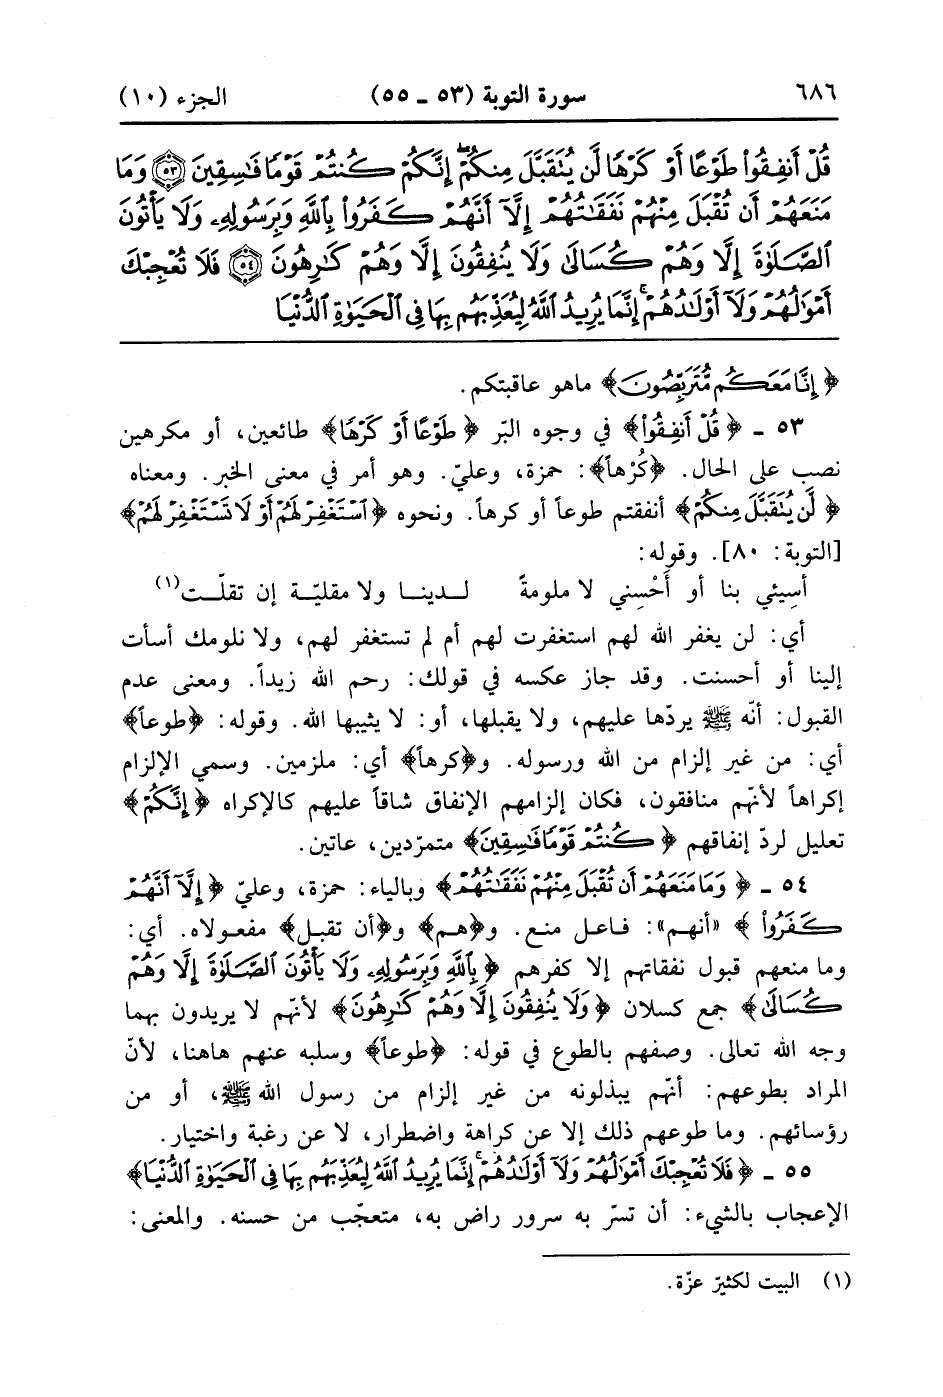 ٦٨٦ سورة التوبة (٥٣ ـ ٥٥) الجزء (١٠)
قُلْ أَنفِقُواْ طَوْعًا أَوْ كَرْهًا لَّن يُتَقَبَّلَ مِنكُمْ إِنَّكُمْ كُنتُمْ قَوْمًا فَـٰسِقِينَ ٥٣ وَمَا
مَنَعَهُمْ أَن تُقْبَلَ مِنْهُمْ نَفَقَـٰتُهُمْ إِلَّآ أَنَّهُمْ كَفَرُواْ بِٱللَّهِ وَبِرَسُولِهِۦ وَلَا يَأْتُونَ
ٱلصَّلَوٰةَ إِلَّا وَهُمْ كُسَالَىٰ وَلَا يُنفِقُونَ إِلَّا وَهُمْ كَـٰرِهُونَ ٥٤ فَلَا تُعْجِبْكَ
أَمْوَٰلُهُمْ وَلَآ أَوْلَـٰدُهُمْ ۚ إِنَّمَا يُرِيدُ ٱللَّهُ لِيُعَذِّبَهُم بِهَا فِى ٱلْحَيَوٰةِ ٱلدُّنْيَا
﴿إِنَّا مَعَكُم مُّتَرَبِّصُونَ﴾ ماهو عاقبتكم.
٥٣ ـ ﴿قُلْ أَنفِقُواْ﴾ في وجوه البّر ﴿طَوْعًا أَوْ كَرْهًا﴾ طائعين، أو مكرهين
نصب على الحال. ﴿كُرْهاً﴾: حمزة، وعليّ. وهو أمر في معنى الخبر. ومعناه
﴿لَّن يُتَقَبَّلَ مِنكُمْ﴾ أنفقتم طوعاً أو كرهاً. ونحوه ﴿ٱسْتَغْفِرْ لَهُمْ أَوْ لَا تَسْتَغْفِرْ لَهُمْ﴾
[التوبة: ٨٠]. وقوله:
أسِيئي بنا أو أَحْسِني لا ملومةً لـديـنـا ولا مقليّـة إن تقلّـت(١)
أي: لن يغفر الله لهم استغفرت لهم أم لم تستغفر لهم، ولا نلومك أسأت
إلينا أو أحسنت. وقد جاز عكسه في قولك: رحم الله زيداً. ومعنى عدم
القبول: أنّه ﷺ يردّها عليهم، ولا يقبلها، أو: لا يثيبها الله. وقوله: ﴿طوعاً﴾
أي: من غير إلزام من الله ورسوله. و﴿كرهاً﴾ أي: ملزمين. وسمي الإلزام
إكراهاً لأنّهم منافقون، فكان إلزامهم الإنفاق شاقاً عليهم كالإكراه ﴿إِنَّكُمْ﴾
تعليل لردّ إنفاقهم ﴿كُنتُمْ قَوْمًا فَـٰسِقِينَ﴾ متمرّدين، عاتين.
٥٤ ـ ﴿وَمَا مَنَعَهُمْ أَن تُقْبَلَ مِنْهُمْ نَفَقَـٰتُهُمْ﴾ وبالياء: حمزة، وعليّ ﴿إِلَّآ أَنَّهُمْ
كَفَرُواْ﴾ «أنهم»: فـاعـل منـع. و﴿هـم﴾ و﴿أن تقبـل﴾ مفعـولاه. أي:
وما منعهم قبول نفقاتهم إلا كفرهم ﴿بِٱللَّهِ وَبِرَسُولِهِۦ وَلَا يَأْتُونَ ٱلصَّلَوٰةَ إِلَّا وَهُمْ
كُسَالَىٰ﴾ جمع كسلان ﴿وَلَا يُنفِقُونَ إِلَّا وَهُمْ كَـٰرِهُونَ﴾ لأنّهم لا يريدون بهما
وجه الله تعالى. وصفهم بالطوع في قوله: ﴿طوعاً﴾ وسلبه عنهم هاهنا، لأنّ
المراد بطوعهم: أنّهم يبذلونه من غير إلزام من رسول الله ﷺ، أو من
رؤسائهم. وما طوعهم ذلك إلا عن كراهة واضطرار، لا عن رغبة واختيار.
٥٥ ـ ﴿فَلَا تُعْجِبْكَ أَمْوَٰلُهُمْ وَلَآ أَوْلَـٰدُهُمْ ۚ إِنَّمَا يُرِيدُ ٱللَّهُ لِيُعَذِّبَهُم بِهَا فِى ٱلْحَيَوٰةِ ٱلدُّنْيَا﴾
الإعجاب بالشيء: أن تسرّ به سرور راض به، متعجّب من حسنه. والمعنى:
(١) البيت لكثيّر عزّة.